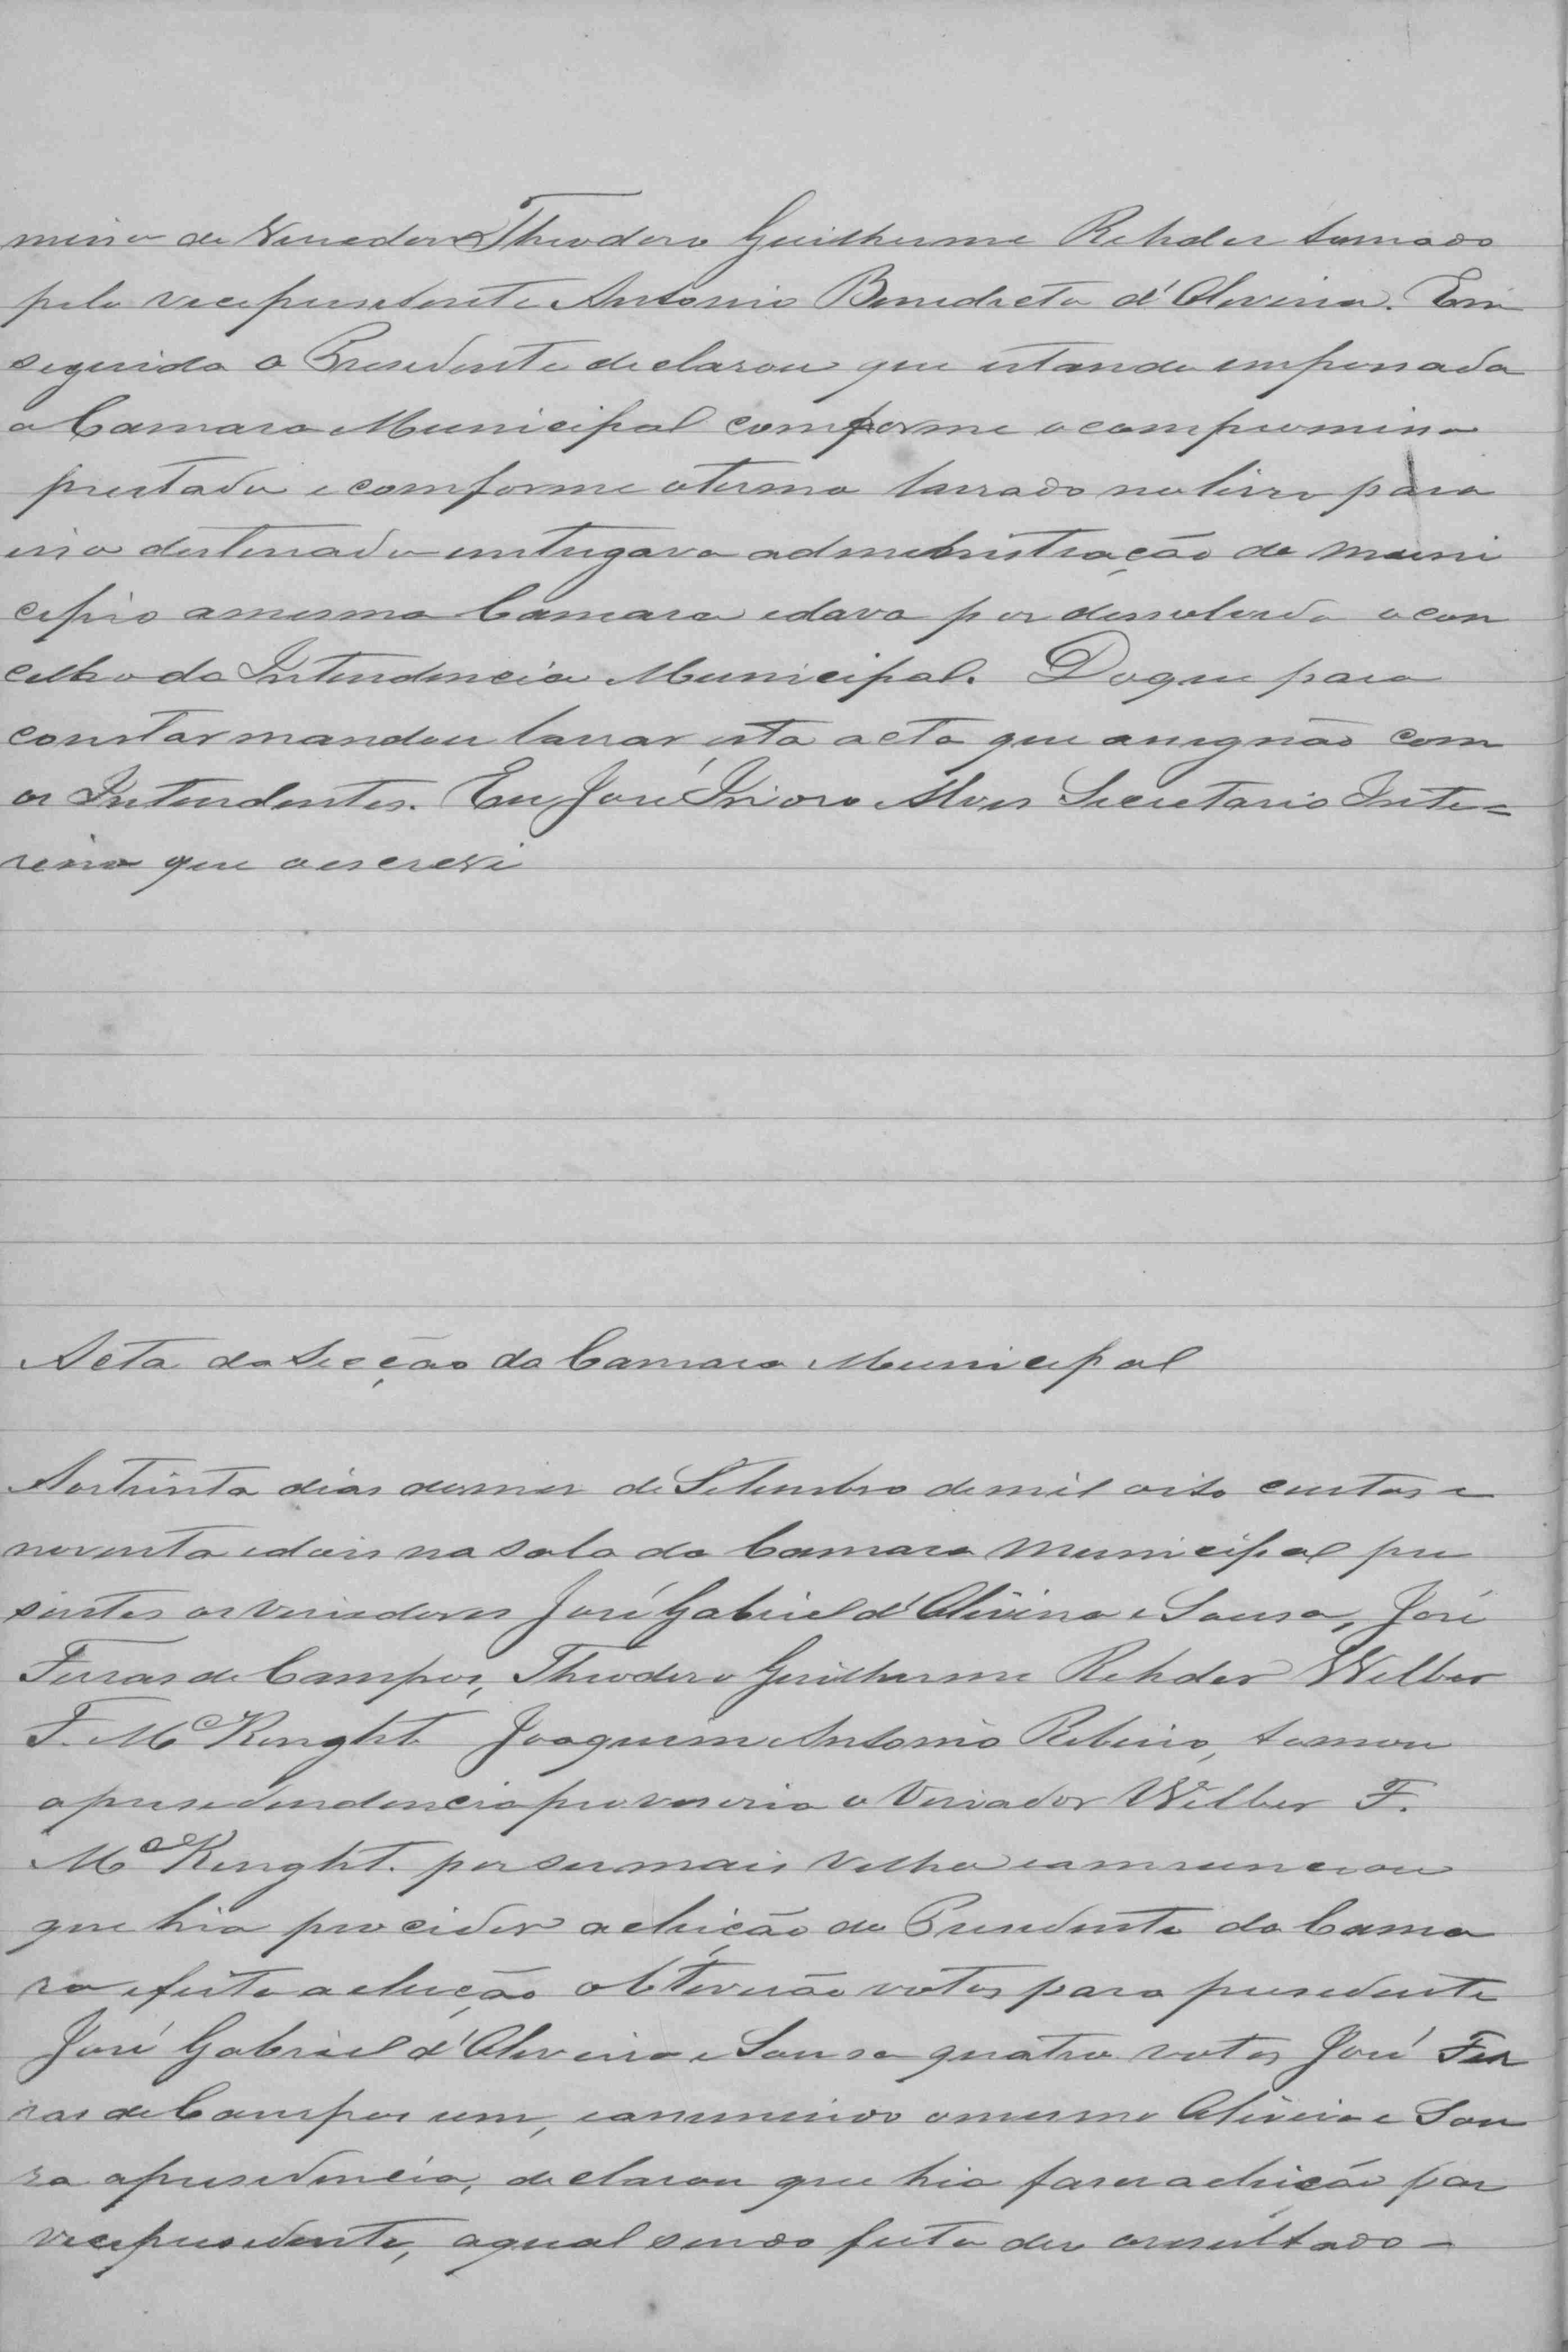 misso de Vereador Theodoro Guilherme Rehder tomado
pelo vecepresedente Antonio Benedicto d'Oliveira. Em
seguida o Presedente declarou que estando empossada
a Camara Municipal comforme o compromisso
prestado e comforme o termo lavrado no livro para
isso destinado entregava administração do muni
cipio a mesma Camara e dava por dessolvido o con
celho da Intendencia Municipal. Do que para
constar mandou lavrar esta acta que assignão com
os Intendentes. Eu, José Isidoro Alves Secretario Inte=
rino que a escrevi
Acta da Secção da Camara Municipal
Aos trinta dias do mes de Setembro de mil oito centos e
noventa e dois na sala da Camara Municipal pre
sentes os Veriadores José Gabriel d'Oliveira e Sousa, José
Ferras de Campos, Theodoro Guilherme Rehder Wilber
F. McKnght Joaquim Antonio Ribeiro, tomou
a presedendencia provesoria o Veriador Wilber F.
McKnght. por ser mais velho e annunciou
que hia proceider a eleição do Presedente da Cama
ra e feita a eleição obterão votos para presedente
José Gabriel d'Oliveira e Sousa quatro votos José Fer
ras de Campos um, e assumindo o mesmo Oliveira e Sou
sa a presedencia, declarou que hia faser a eleição por
vecepresedente, a qual sendo feita deu o resultado -